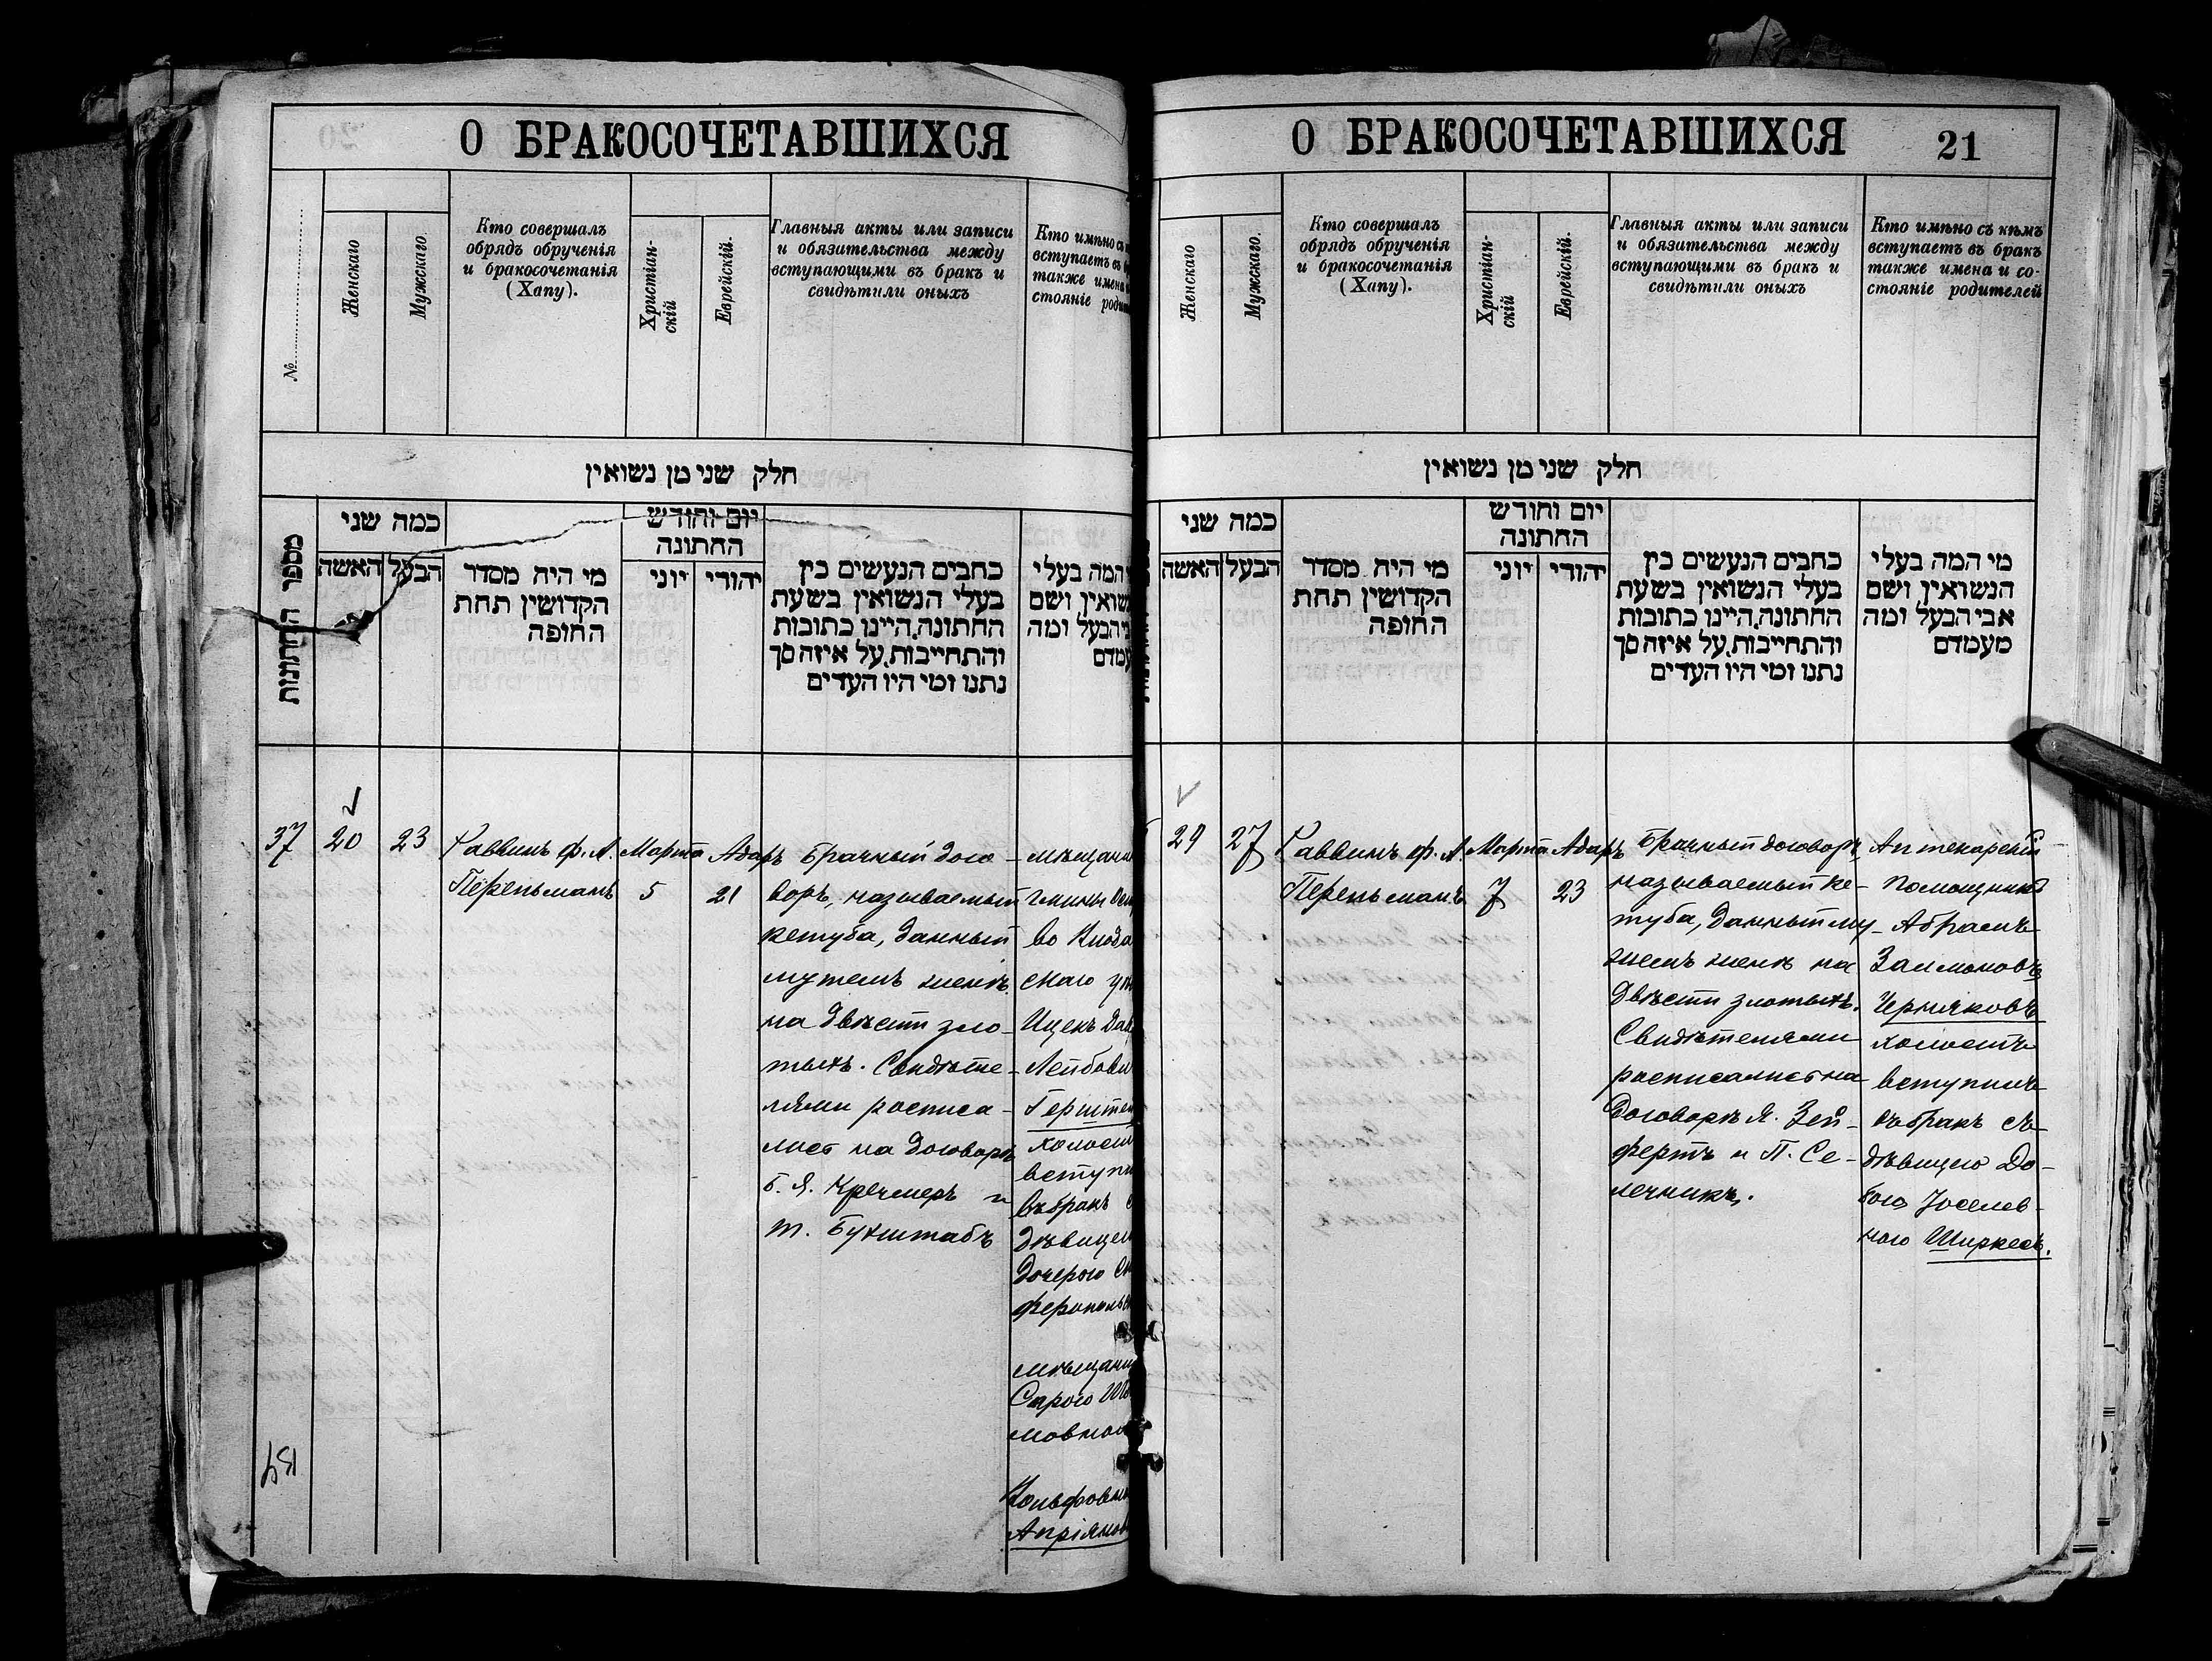 О БРАКОСОЧЕТАВШИХСЯ
№
Женскаго
Мужскаго
Кто совершалъ
обрядъ обрученія
и бракосочетанія
(Хапу).
Христіан-
скій
Еврейскій.
Главныя акты или записи
и обязательства между
вступающими въ бракъ и
свидѣтили оныхъ
Кто имѣно съ
вступаетъ въ
также имена
стояніе
חלק שני מן נשואין
מספר החתונות
כמה שני
האשה
הבעל
מי היה מסדר
הקדושין תחת
החופה
יום וחודש
החתונה
יוני
יהודי
כתבים הנעשים בין
בעלי הנשואין בשעת
החתונה, היינו כתובות
והתחייבות, על איזה סך
נתנו ומי היו העדים
המה בעלי
ושם
הבעל ומה
37
20
23
Раввинъ Ф. Л.
Перельманъ
Марта
5
Адаръ
21
Брачный дого-
воръ, называемый
кетуба, данный
мужемъ женѣ
на двѣсти зло-
тыхъ. Свидѣте-
лями росписа-
лись на договорѣ
Б. Я. Кремеръ и
Т. Бухштабъ
во
скаго
Ицекъ
вступи
въ бракъ
дочерью
О БРАКОСОЧЕТАВШИХСЯ
21
Женскаго
Мужскаго.
Кто совершалъ
обрядъ обрученія
и бракосочетанія
(Хапу).
Христіан-
скій
Еврейскій.
Главныя акты или записи
и обязательства между
вступающими въ бракъ и
свидѣтили оныхъ
Кто имѣно съ кѣмъ
вступаетъ въ бракъ
также имена и со-
стояніе родителей
חלק שני מן נשואין
כמה שני
האשה
הבעל
מי היה מסדר
הקדושין תחת
החופה
יום וחודש
החתונה
יוני
יהודי
כתבים הנעשים בין
בעלי הנשואין בשעת
החתונה, היינו כתובות
והתחייבות, על איזה סך
נתנו ומי היו העדים
מי המה בעלי
הנשואין ושם
אבי הבעל ומה
מעמדם
29
27
Раввинъ Ф. Л.
Перельманъ
Марта
7
Адаръ
23
Брачный договоръ,
называемый ке-
туба, данный му-
жемъ женѣ на
двѣсти злотыхъ.
Свидѣтелями
росписались на
договорѣ Я. Зей-
фертъ и П. Се-
лечникъ.
Аптекарскій
помощникъ
Абрамъ
Залмановъ
Черняковъ
холостъ
вступилъ
въ бракъ съ
дѣвицею До-
бою Іоселев-
ною Ширкесъ.